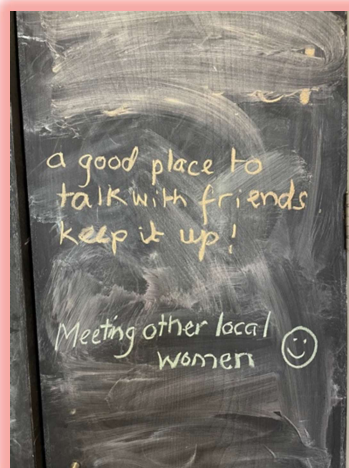 a good place to
talk with friends
keep it up!
Meeting other local
women